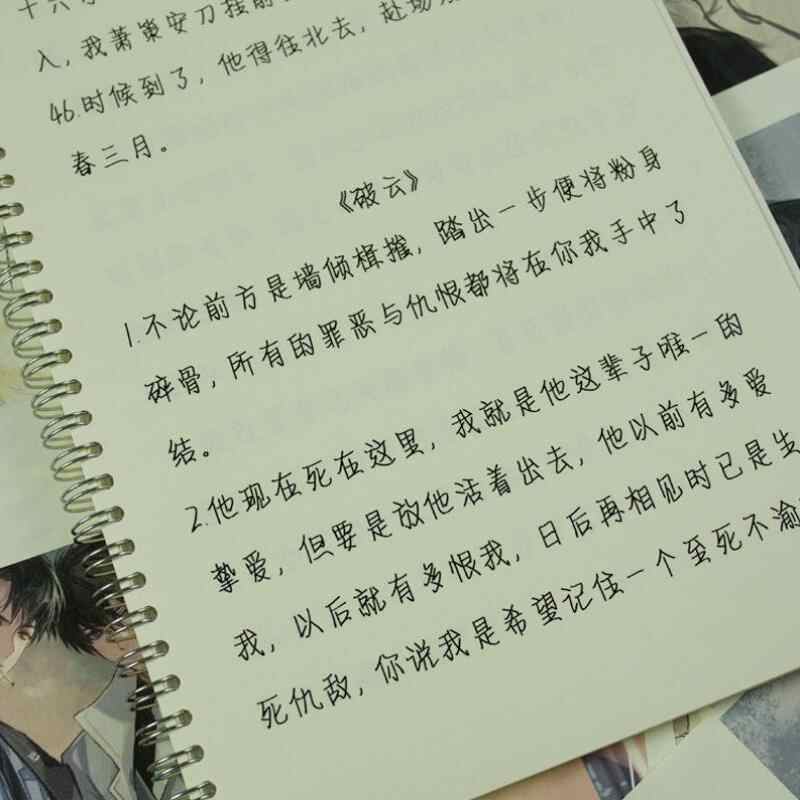 十六
入,我萧策安刀挂前
46.时候到了,他得往北去,赴场
春三月。
《破云》
1.不论前方是墙倾楫摧,踏出一步便将粉身
碎骨,所有的罪恶与仇恨都将在你我手中了
结。
2.他现在死在这里,我就是他这辈子唯一的
挚爱,但要是放他活着出去,他以前有多爱
我,以后就有多恨我,日后再相见时已是生
死仇敌,你说我是希望记住一个至死不渝